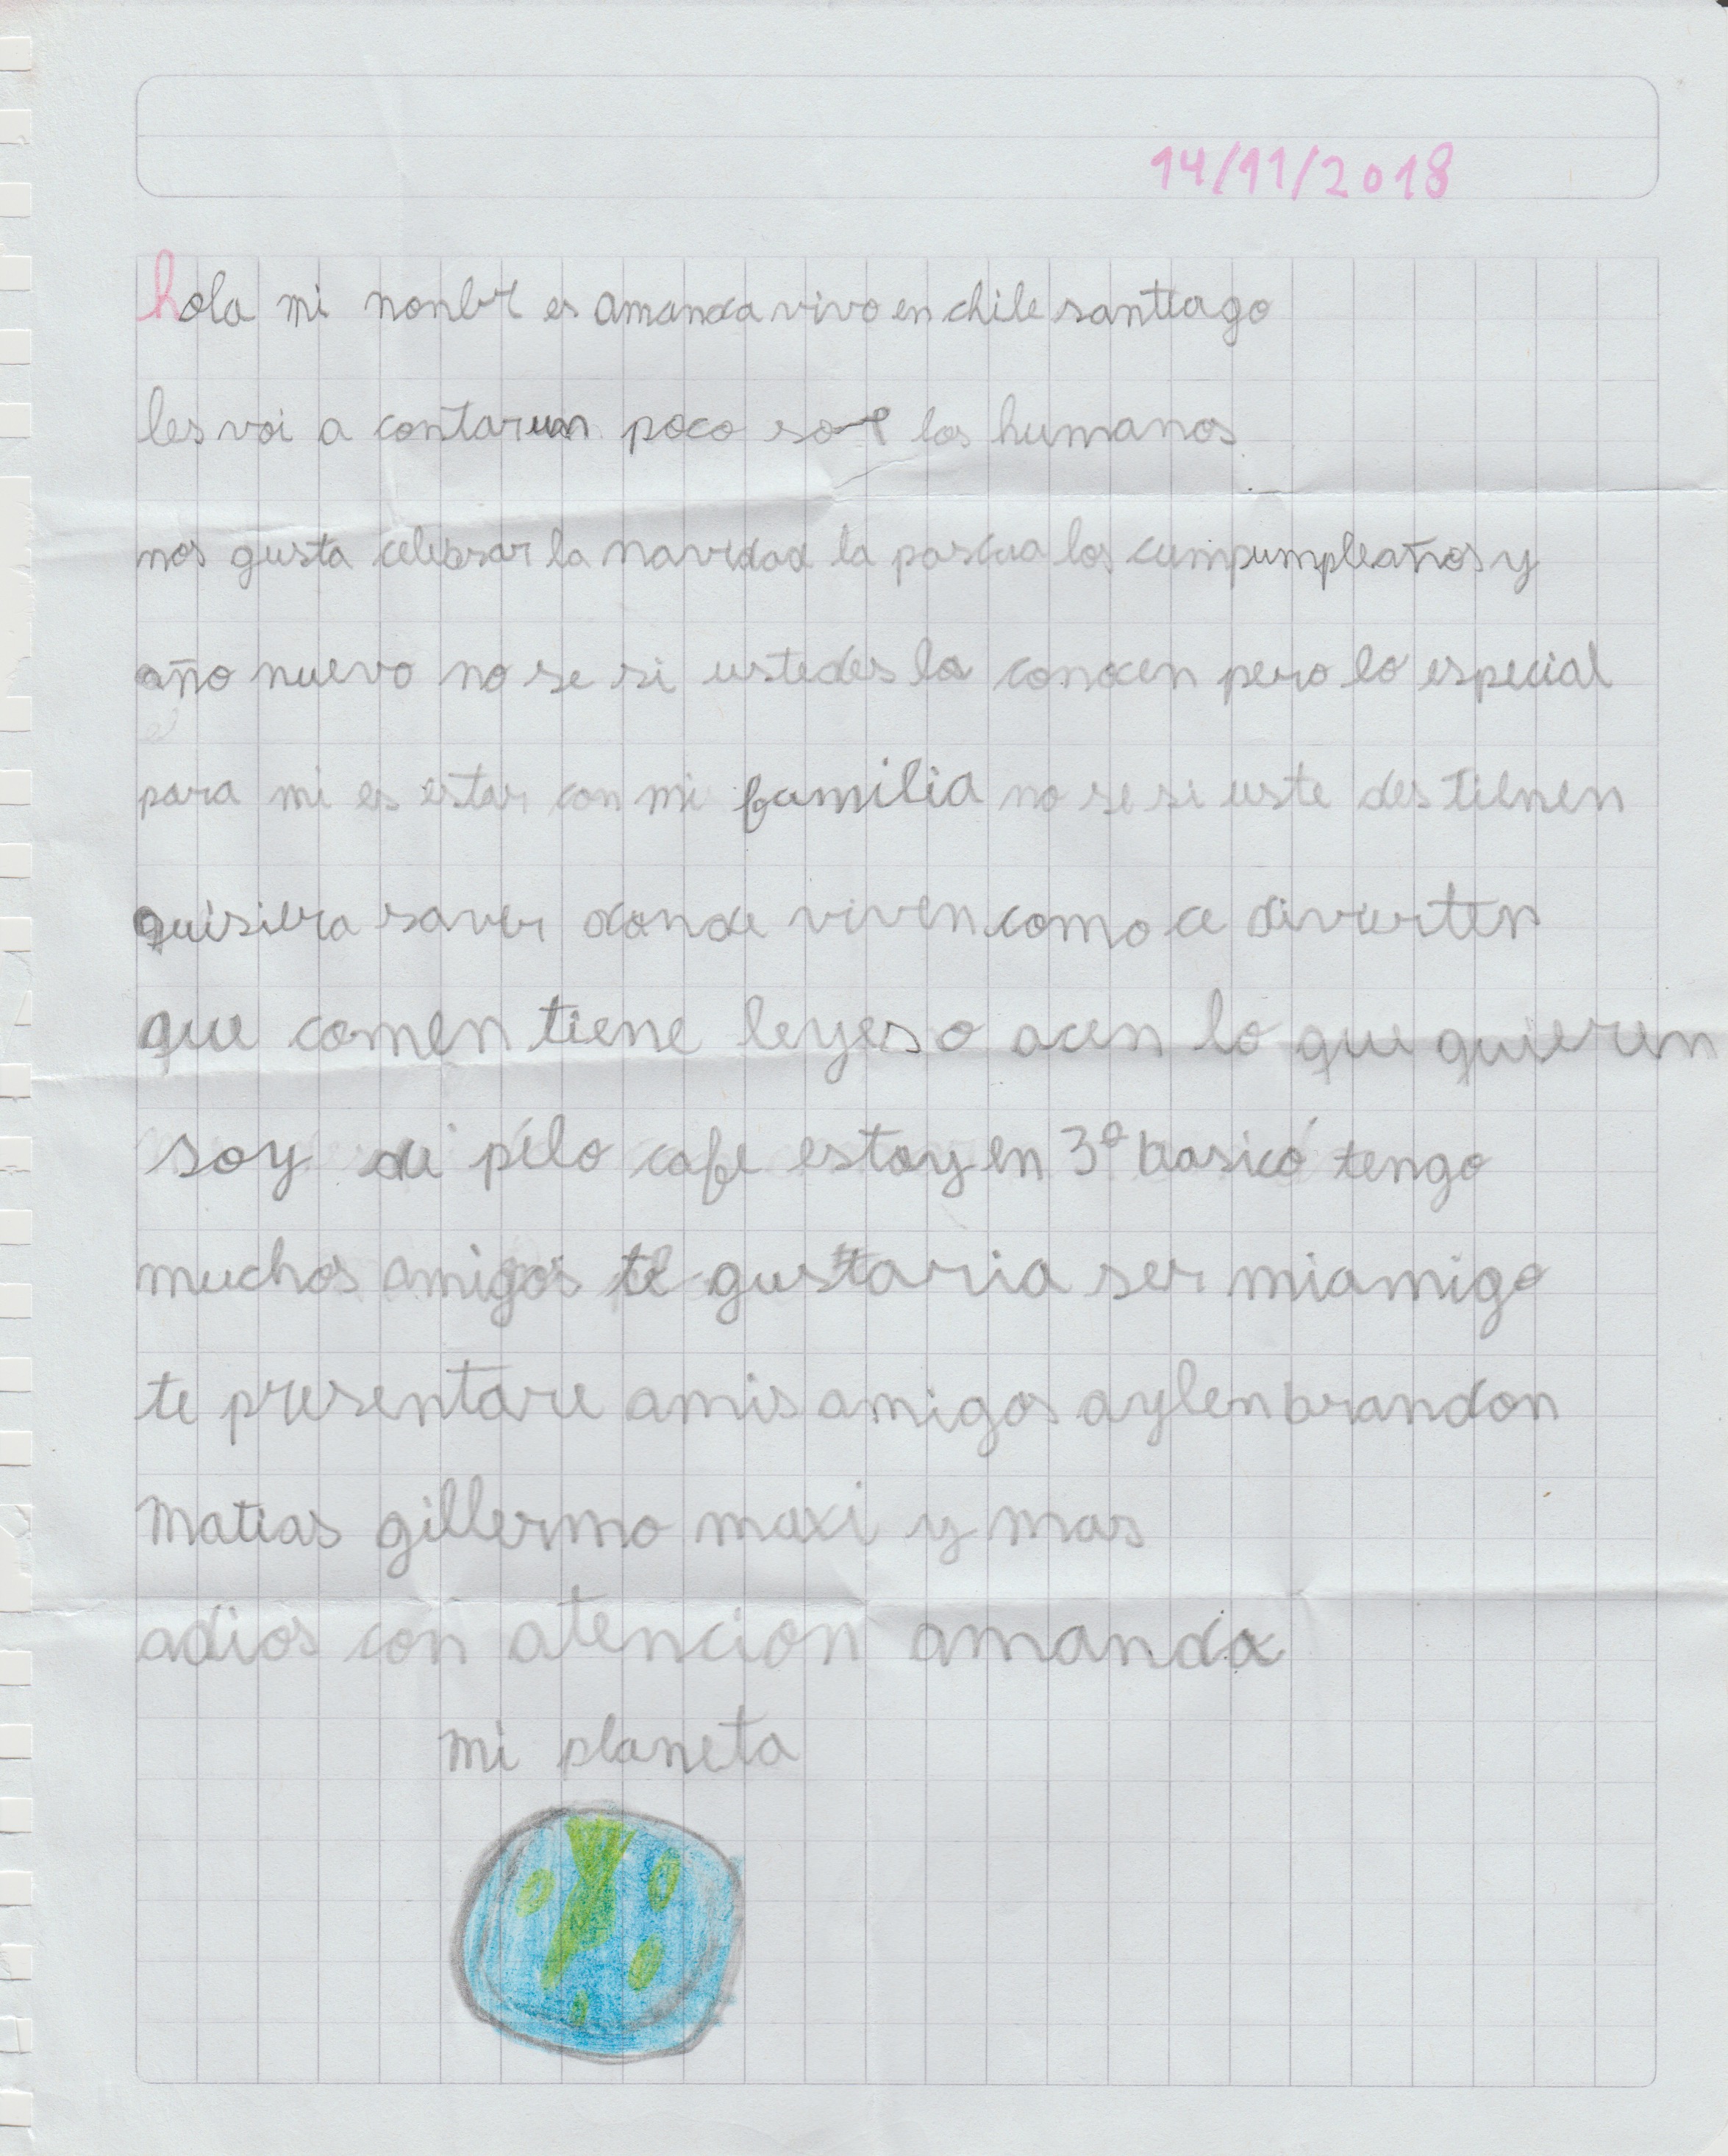 14/11/2018
hola mi nonbre es amanda vivo en chile santiago
les voi a contar un poco los humanos
nos gusta celebrar la navidad la pascua los cumpumpleaños y
año nuevo no se si ustedes la conocen pero lo especial
para mi es estar con mi familia no se si uste des tienen
quisiera saver donde viven como ce divierten
que comen tiene leyes o acen lo que quieren
soy de pelo cafe estoy en 3º basico tengo
muchos amigos te gustaria ser mi amigo
te presentare a mis amigos aylen brandon
matias gillermo maxi y mas
adios con atencion amanda
mi planeta